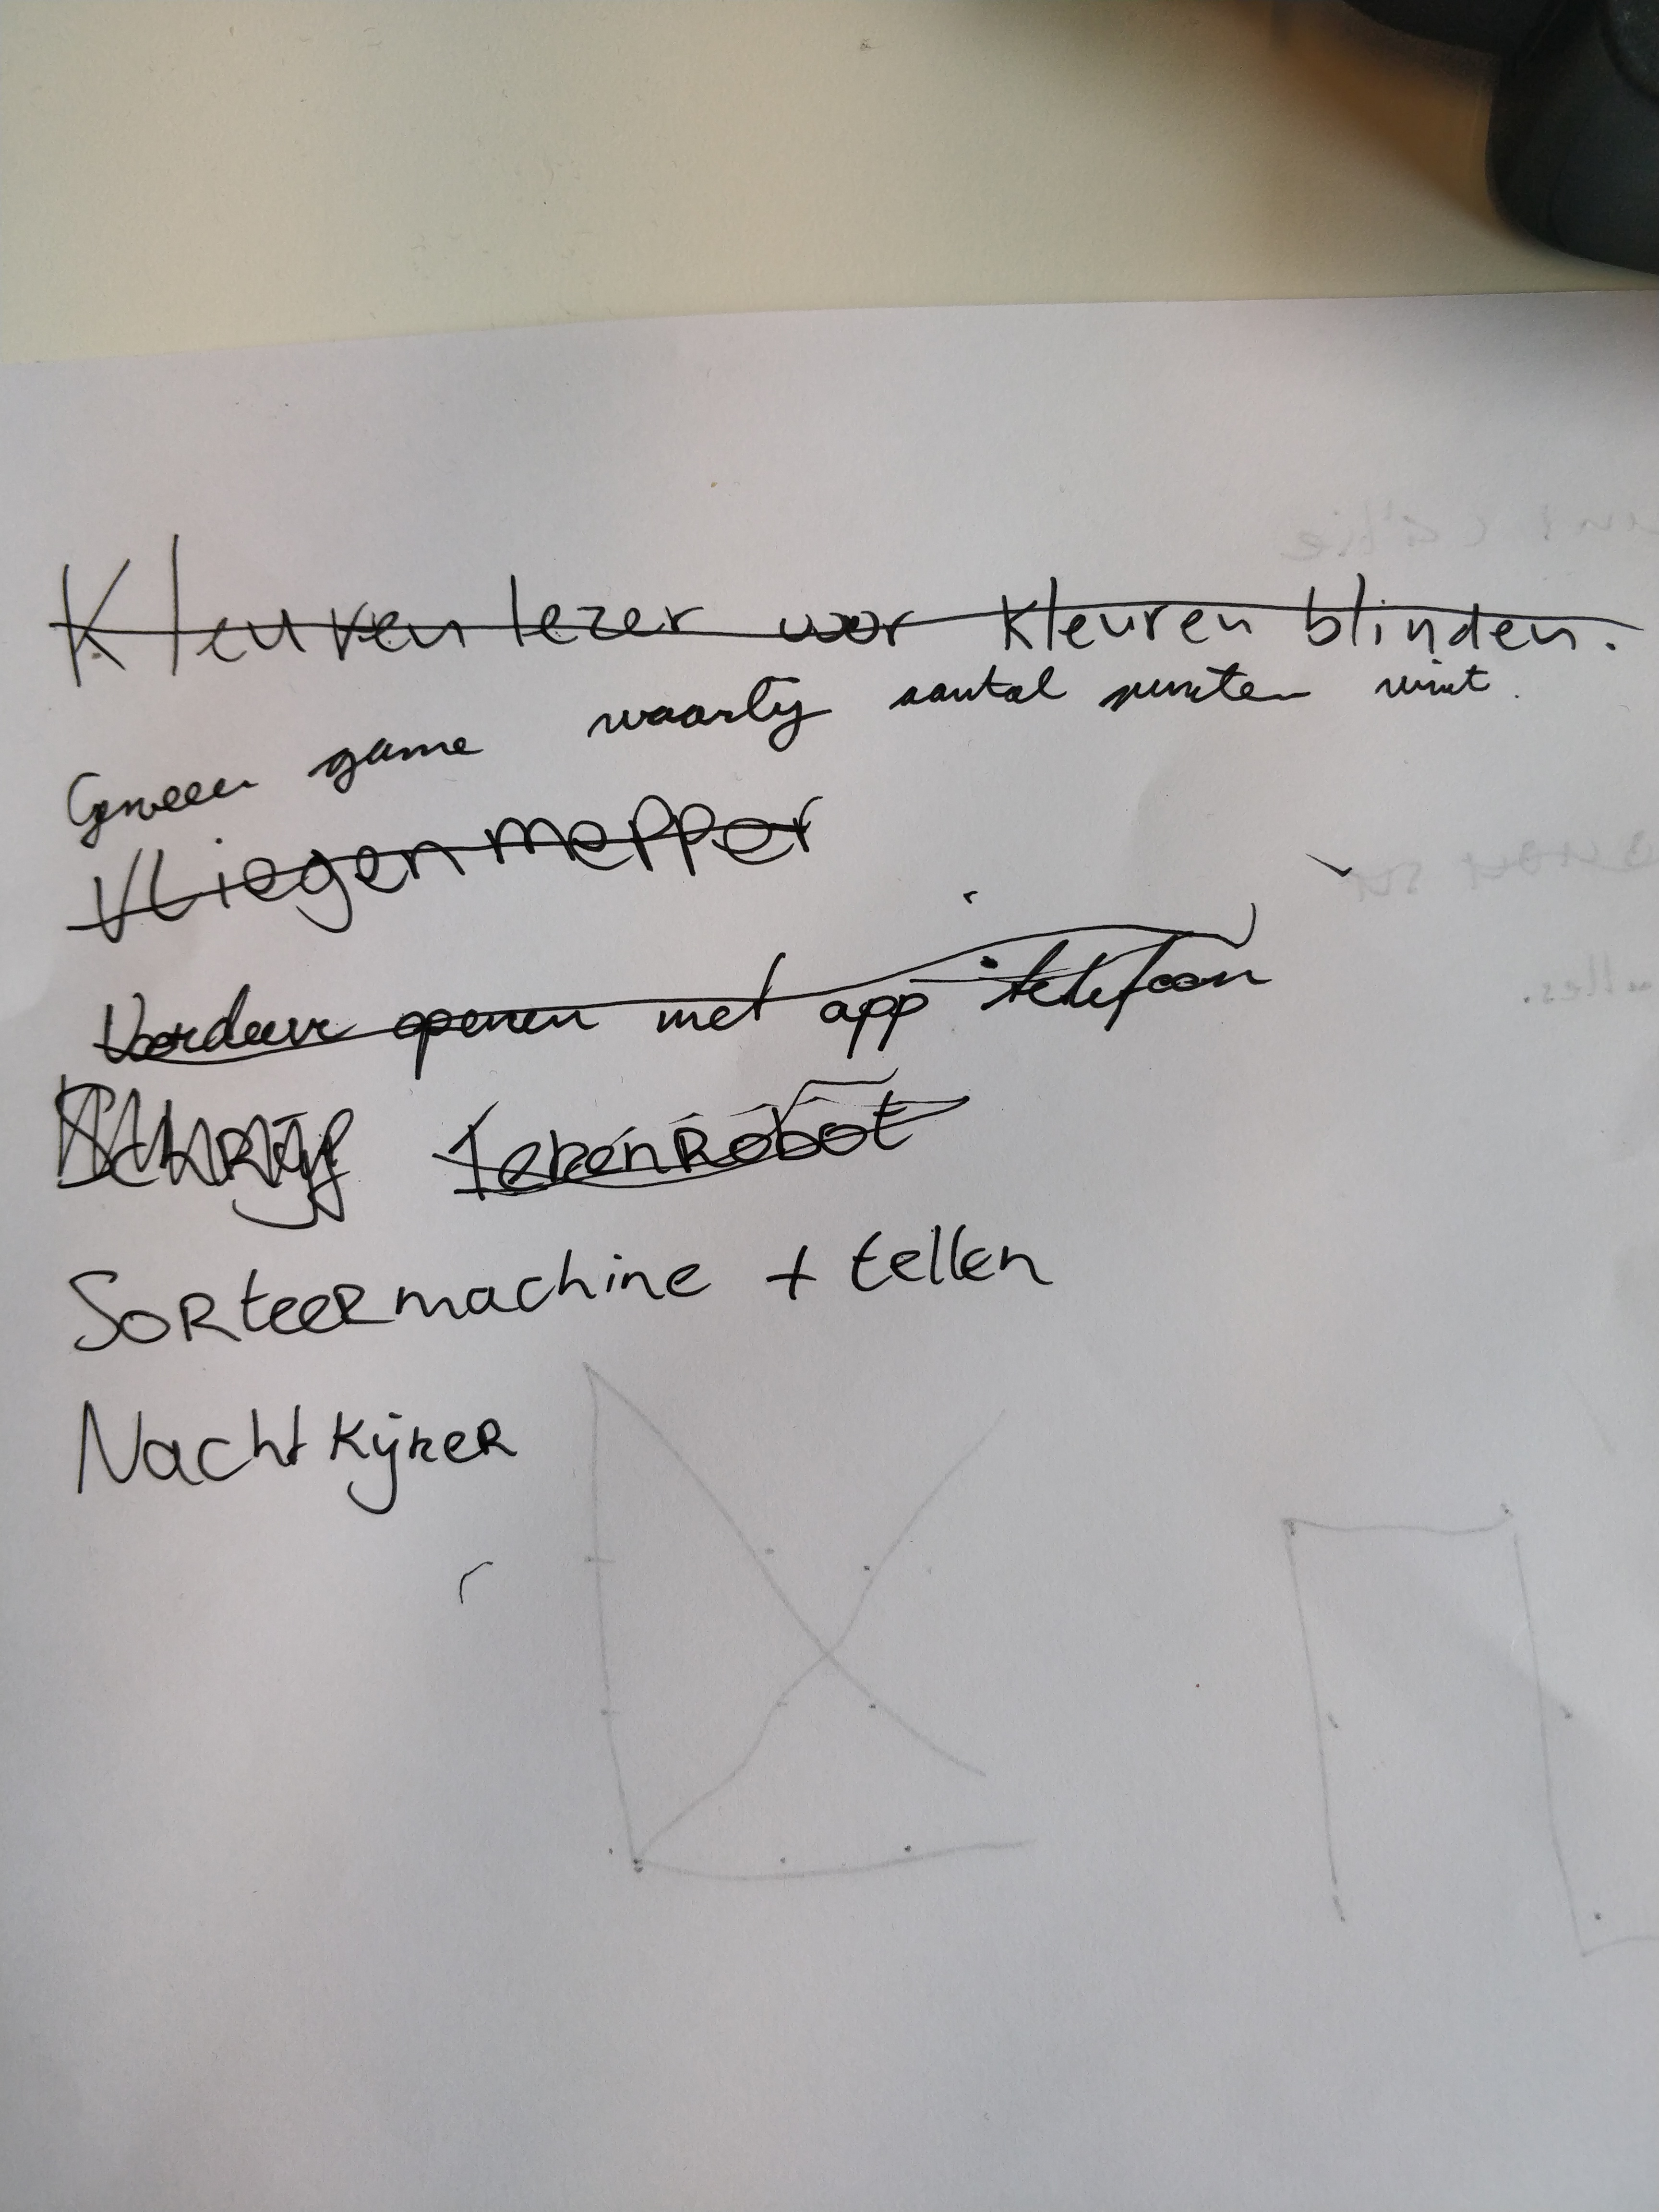 Kleuren lezer voor kleuren blinden.
game waarbij aantal punten wint.
Vliegenmepper
Voordeur openen met app telefoon
Schrijf Tekenrobot
Sorteermachine + tellen
Nachtkijker